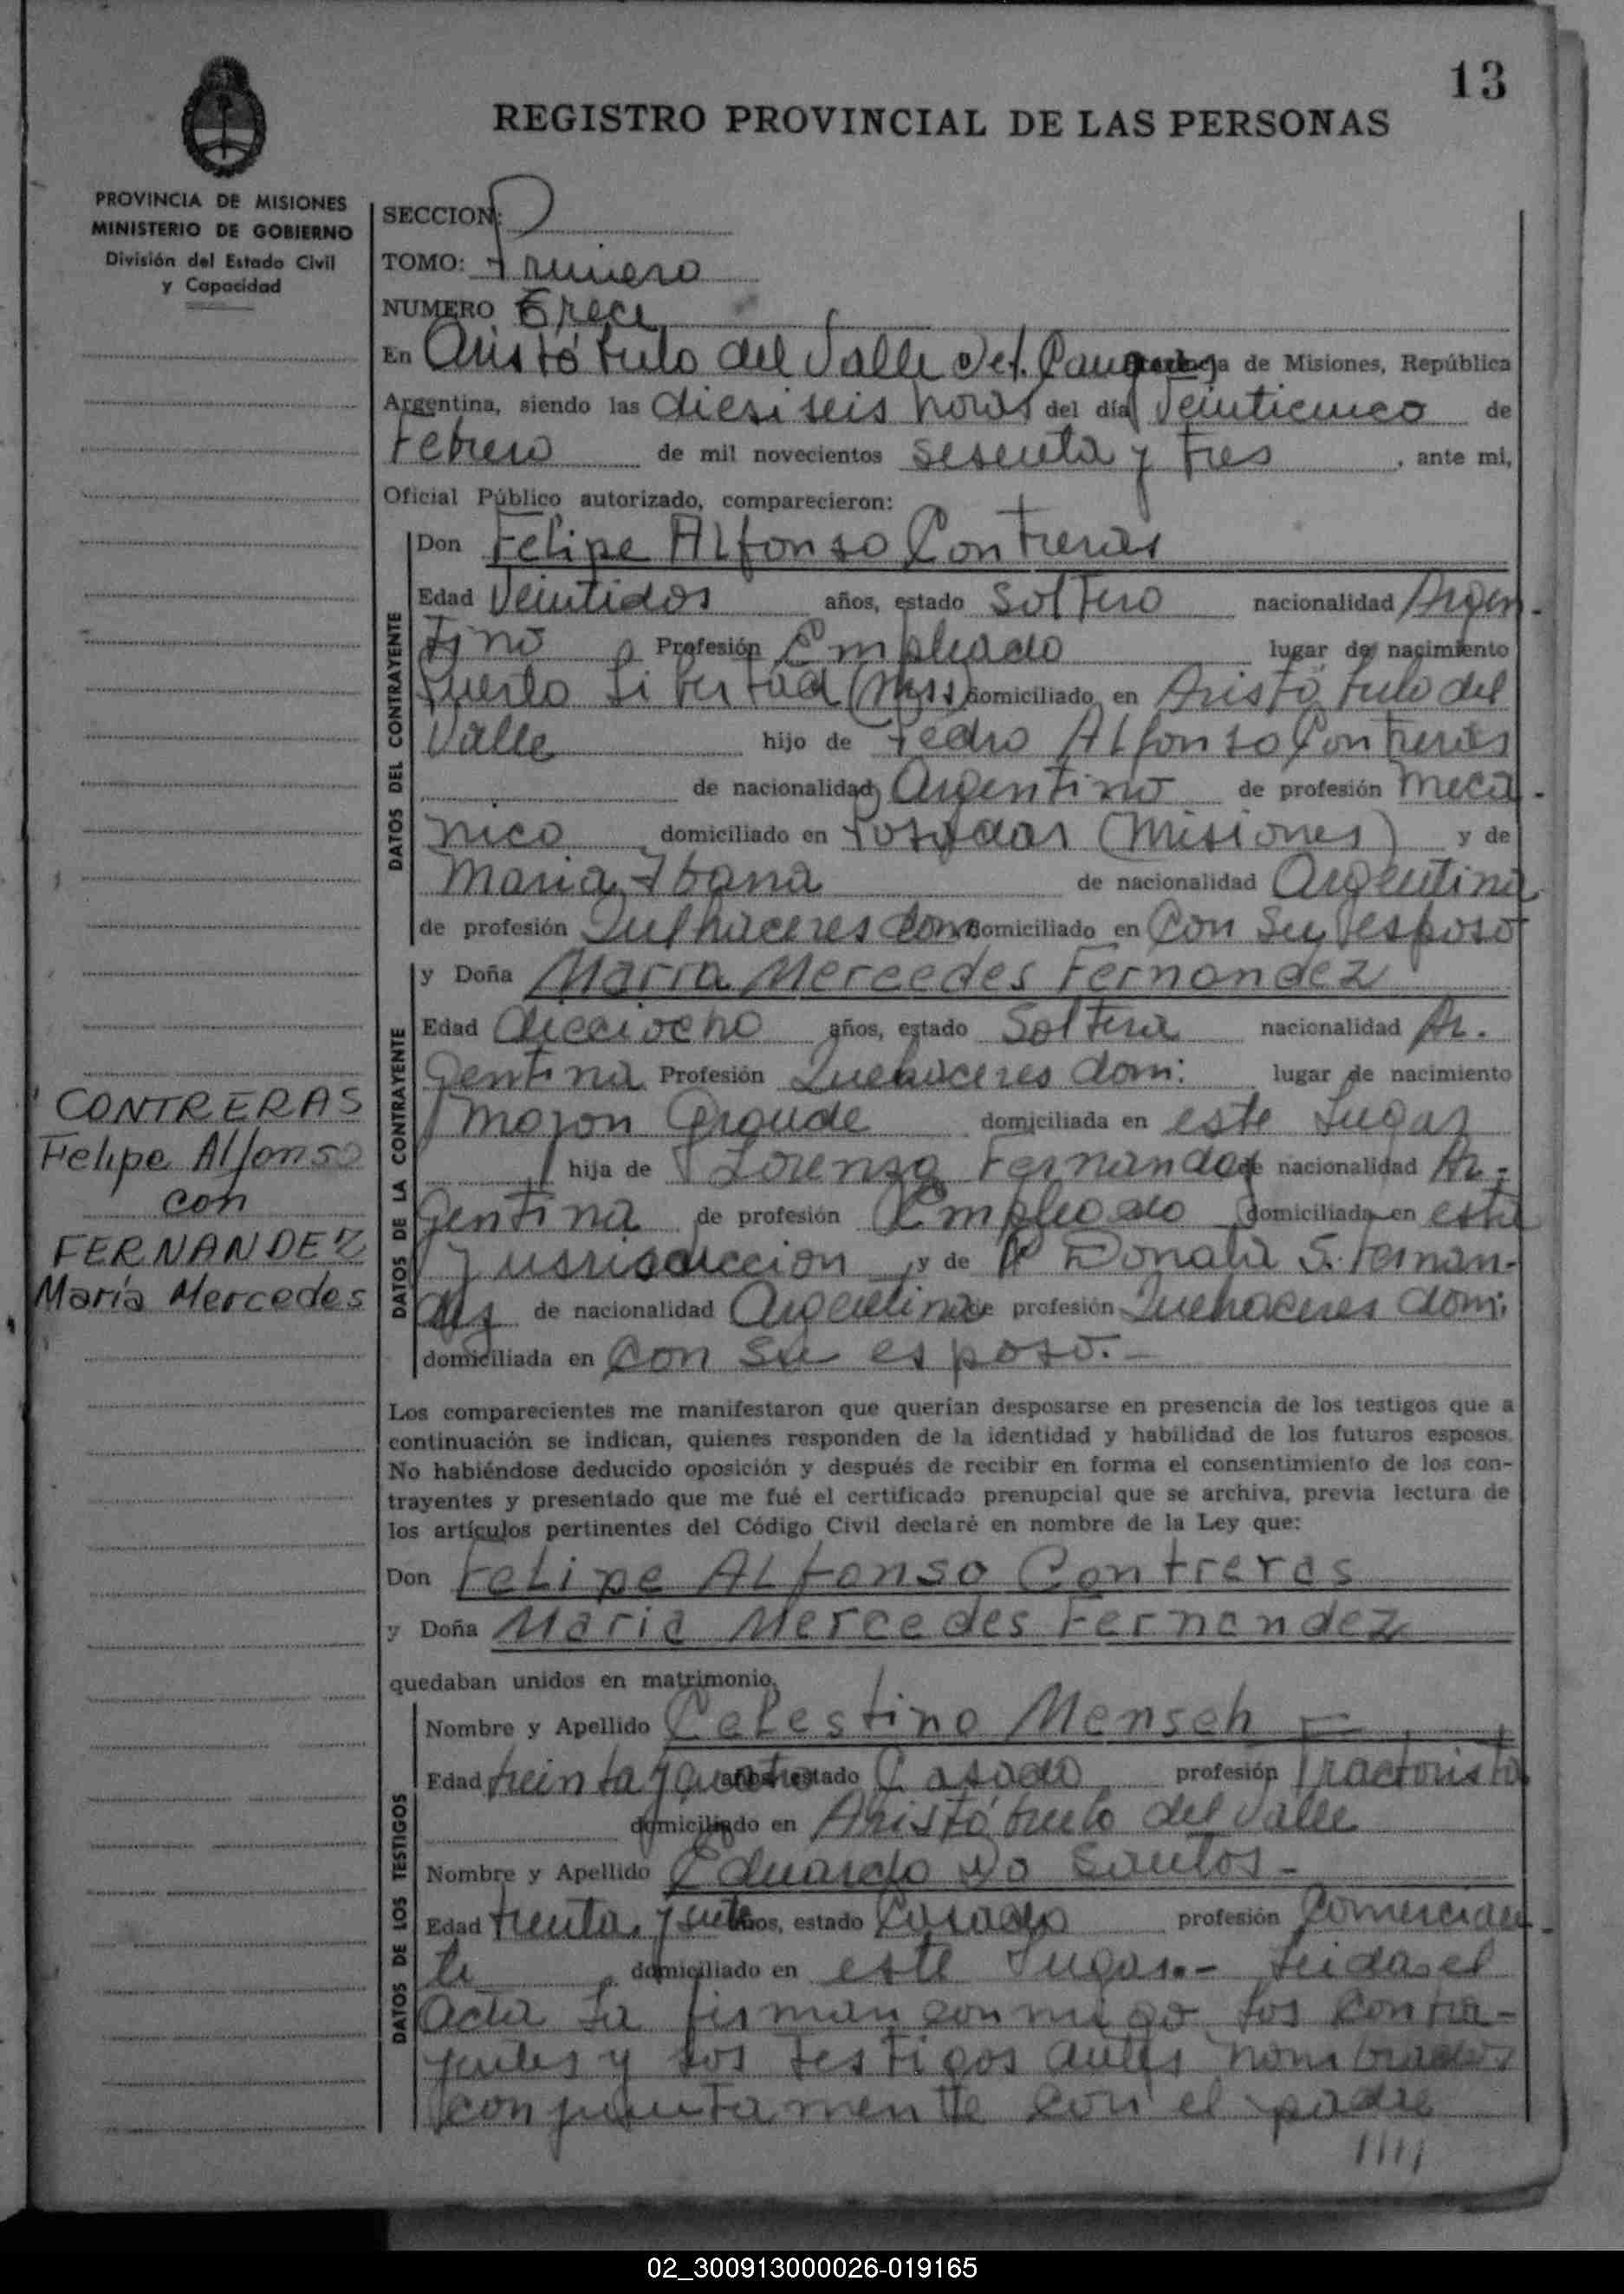 13
REGISTRO PROVINCIAL DE LAS PERSONAS
PROVINCIA DE MISIONES
MINISTERIO DE GOBIERNO
División del Estado Civil
y Capacidad
SECCION:
TOMO: Primero
NUMERO Trece
En Aristóbulo del Valle de Misiones, República
Argentina, siendo las dieciseis horas del día Veinticinco de
Febrero de mil novecientos sesenta y tres, ante mi,
Oficial Público autorizado, comparecieron:
DATOS DEL CONTRAYENTE
Don Felipe Alfonso Contreras
Edad Veintidos años, estado Soltero nacionalidad Argen-
tino Profesión Empleado lugar de nacimiento
Puerto Libertad (Mnes) domiciliado en Aristóbulo del
Valle hijo de Pedro Alfonso Contreras
de nacionalidad Argentino de profesión Mecá-
nico domiciliado en Posadas (Misiones) y de
Maria de nacionalidad Argentina
de profesión Quehaceres dom domiciliado en Con su esposo
DATOS DE LA CONTRAYENTE
y Doña Maria Mercedes Fernandez
Edad dieciocho años, estado Soltera nacionalidad Ar-
gentina Profesión Quehaceres dom: lugar de nacimiento
Mojon Grande domiciliada en este Lugar
hija de Lorenzo Fernandez de nacionalidad Ar-
gentina de profesión Empleado domiciliada en esta
Jusrisdiccion y de Donata S. Fernan-
dez de nacionalidad Argentina de profesión Quehaceres dom:
domiciliada en Con su esposo.-
CONTRERAS
Felipe Alfonso
con
FERNANDEZ
María Mercedes
Los comparecientes me manifestaron que querían desposarse en presencia de los testigos que a
continuación se indican, quienes responden de la identidad y habilidad de los futuros esposos.
No habiéndose deducido oposición y después de recibir en forma el consentimiento de los con-
trayentes y presentado que me fué el certificado prenupcial que se archiva, previa lectura de
los artículos pertinentes del Código Civil declaré en nombre de la Ley que:
Don Felipe Alfonso Contreras
y Doña Maria Mercedes Fernandez
quedaban unidos en matrimonio,
DATOS DE LOS TESTIGOS
Nombre y Apellido Celestino Mensch
Edad treinta y cuatro años, estado Casado profesión Tractorista
domiciliado en Aristóbulo del Valle
Nombre y Apellido Eduardo Do Santos-
Edad treinta y siete años, estado Casado profesión Comercian-
te domiciliado en este Lugar.- Leida el
acta la firman conmigo los contra-
yentes y los testigos antes nombrados
conjuntamente con el padre
////
02_300913000026-019165